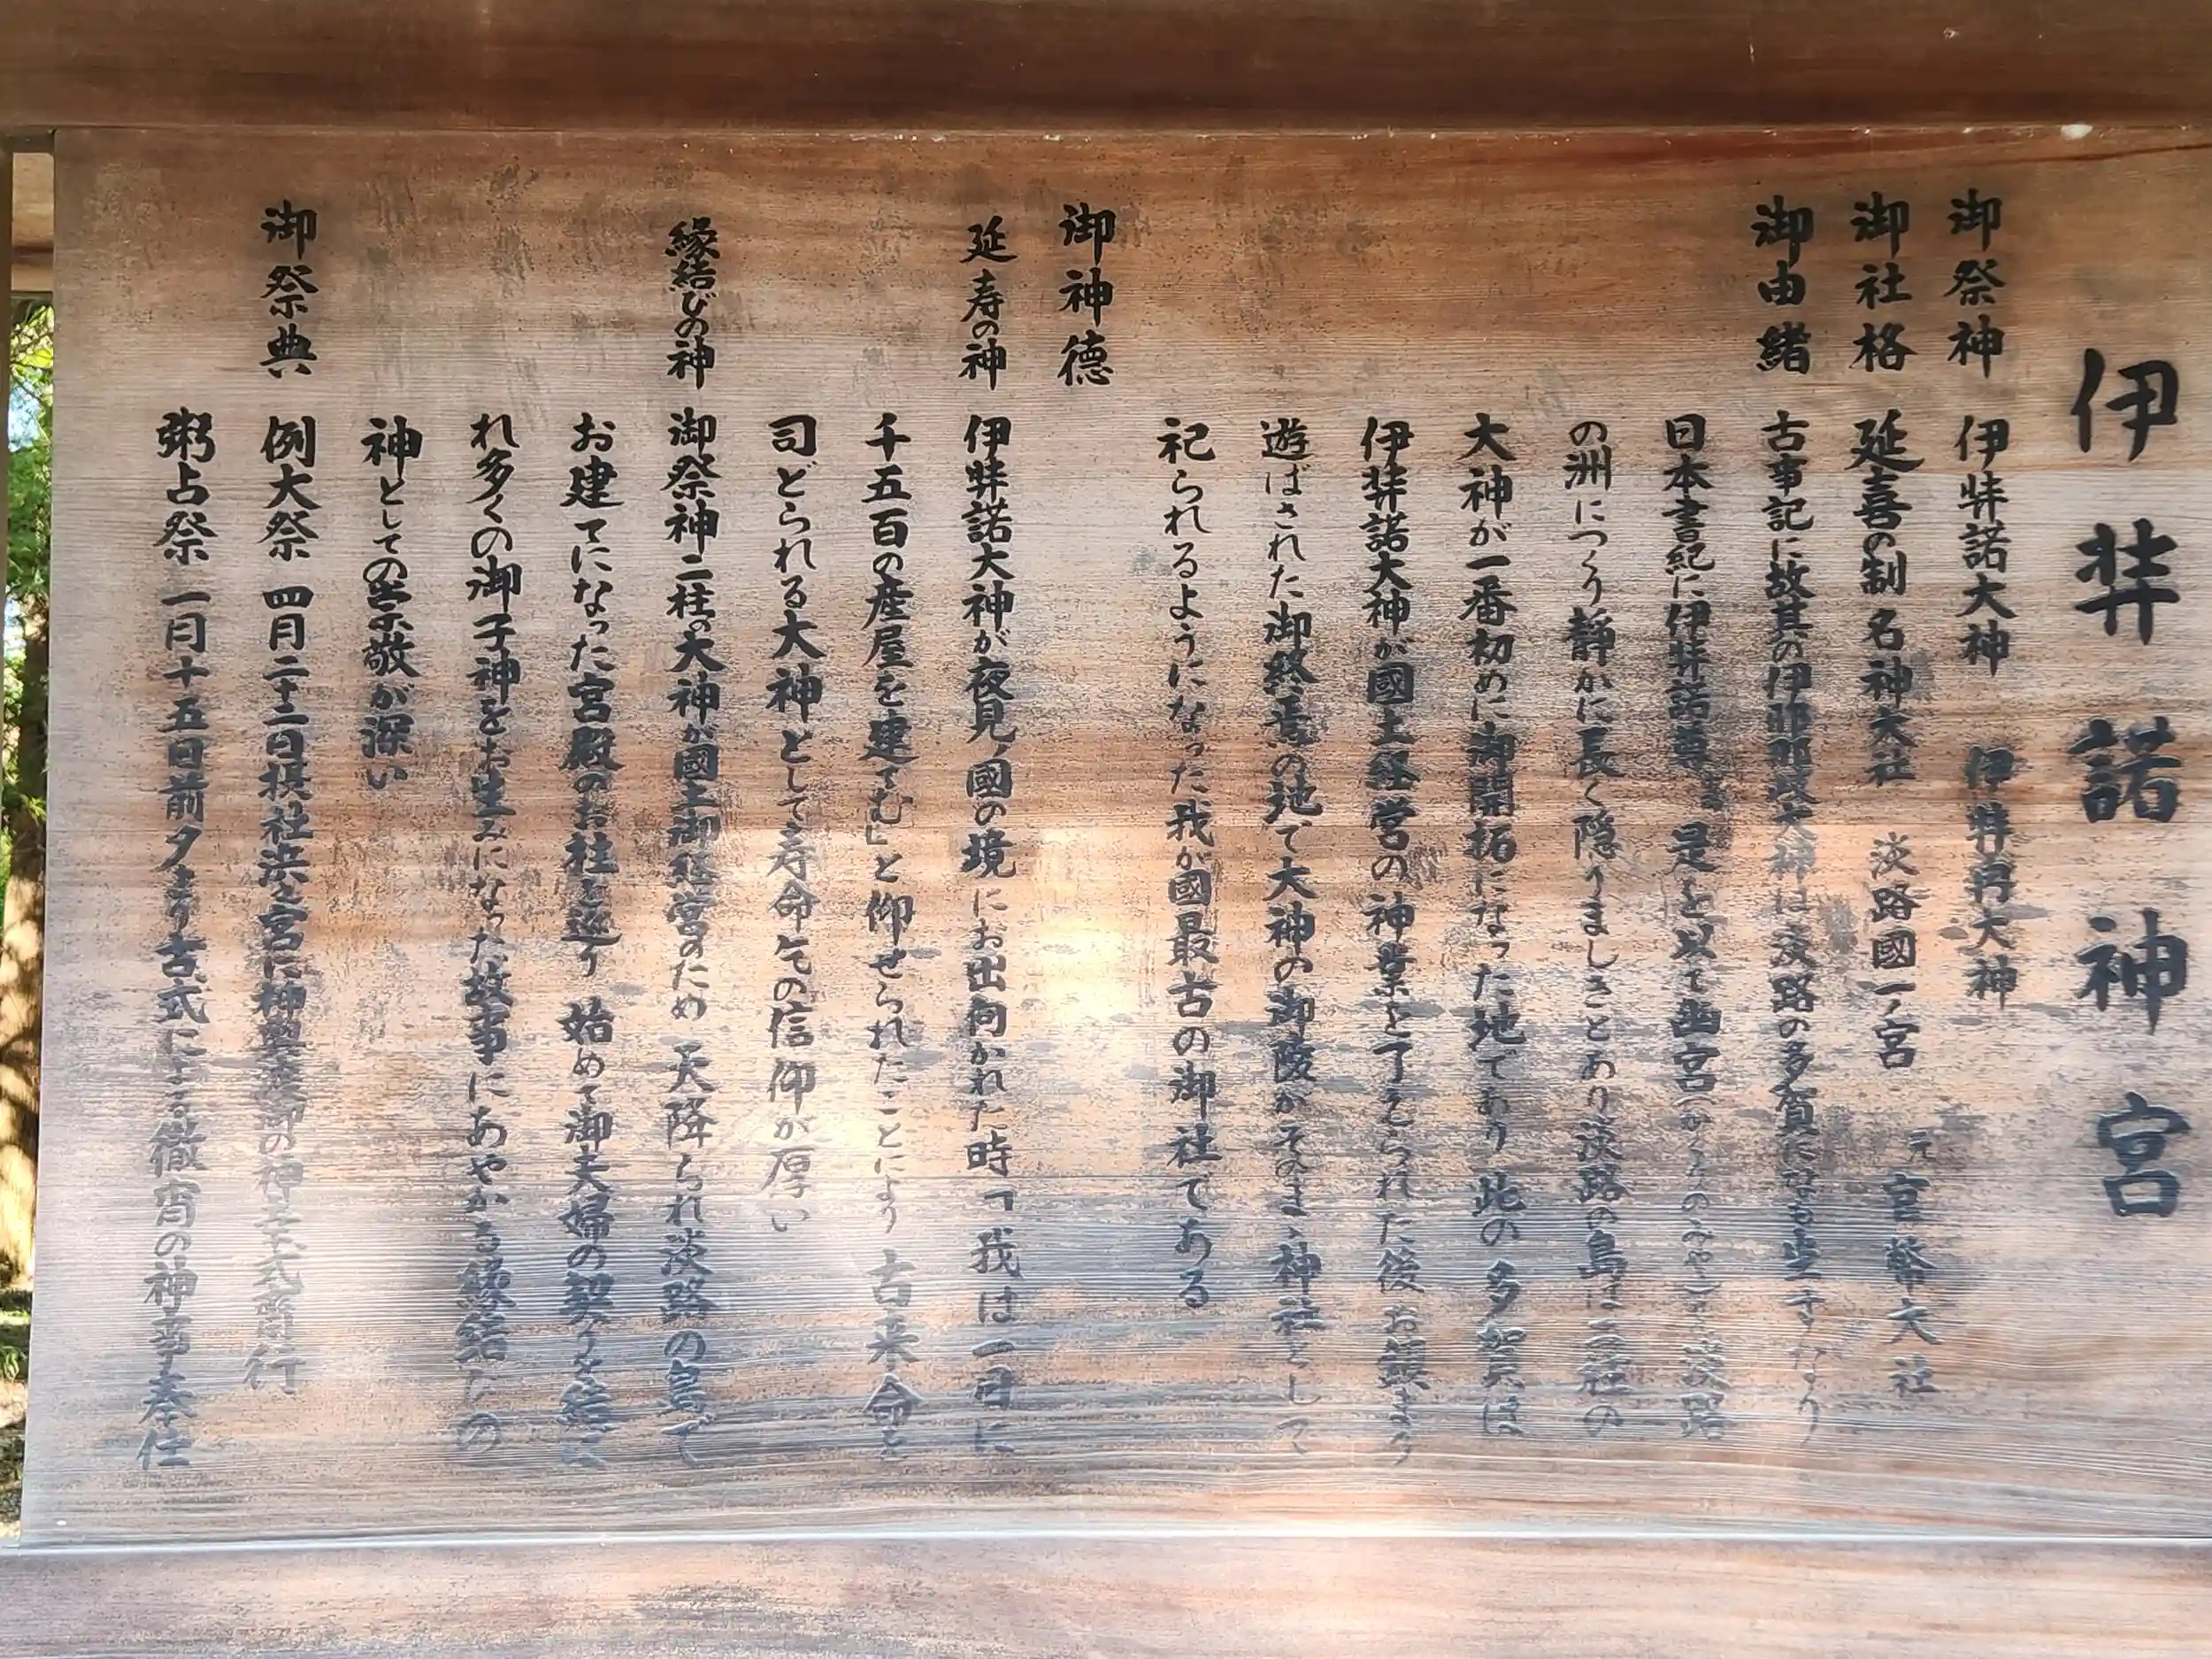 伊弉諾神宮
御祭神 伊弉諾大神 伊弉冉大神
御社格 延喜の制 名神大社 淡路國一ノ宮 元官幣大社
御由緒 古事記に故其の伊耶那岐大神は淡路の多賀になも坐すなり
日本書紀に伊弉諾尊 是を以て幽宮(かくれのみや)を淡路
の洲につくり静かに長く隠りましきとあり淡路の島は二柱の
大神が一番初めに御開拓になった地であり 此の多賀は
伊弉諾大神が國土経営の神業を了えられた後 お鎮まり
遊ばされた御終焉の地で大神の御陵がそのまゝ神社として
祀られるようになった我が國最古の御社である
御神徳
延寿の神 伊弉諾大神が夜見ノ國の境にお出向かれた時「我は一日に
千五百の産屋を建てむ」と仰せられたことにより 古来命を
司どられる大神として寿命乞の信仰が厚い
縁結びの神 御祭神二柱の大神が國土御経営のため 天降られ淡路の島で
お建てになった宮殿のお柱を巡り 始めて御夫婦の契りを結ば
れ多くの御子神をお生みになった故事にあやかる縁結びの
神としての崇敬が深い
御祭典 例大祭 四月二十二日摂社浜之宮に神輿渡御の神幸式斎行
粥占祭 一月十五日前夕より古式による徹宵の神事奉仕